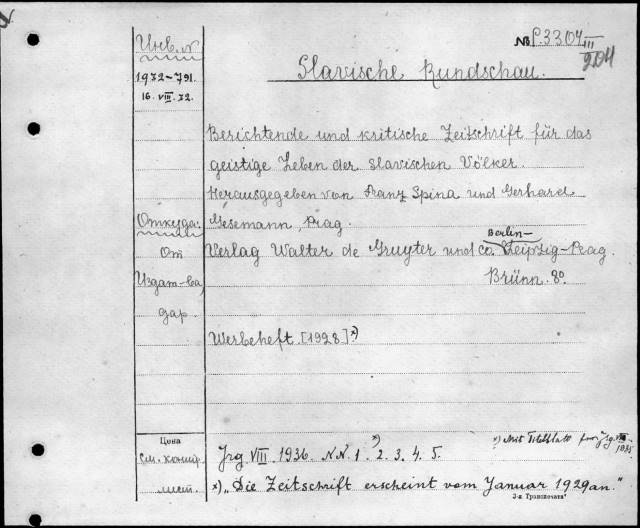 № P.3304 III
204
Инв. №
Slavische Rundschau.
1972-791.
16. VIII. 72.
Berichtende und kritische Zeitschrift für das
geistige Leben der slavischen Völker.
Herausgegeben von Franz Spina und Gerhard
Откуда: Gesemann, Prag.
Berlin-
От Verlag Walter de Gruyter und Co. Leipzig-Prag.
Издат-ва, Brünn. 8o.
дар.
Werbeheft. [1928] x)
Цена
x) Mit Titelblatt
x)
см. конт. Jrg VIII. 1936. N.N. 1. 2. 3. 4. 5.
лист. x) „Die Zeitschrift erscheint vom Januar 1929 an."
3-я Транспечать